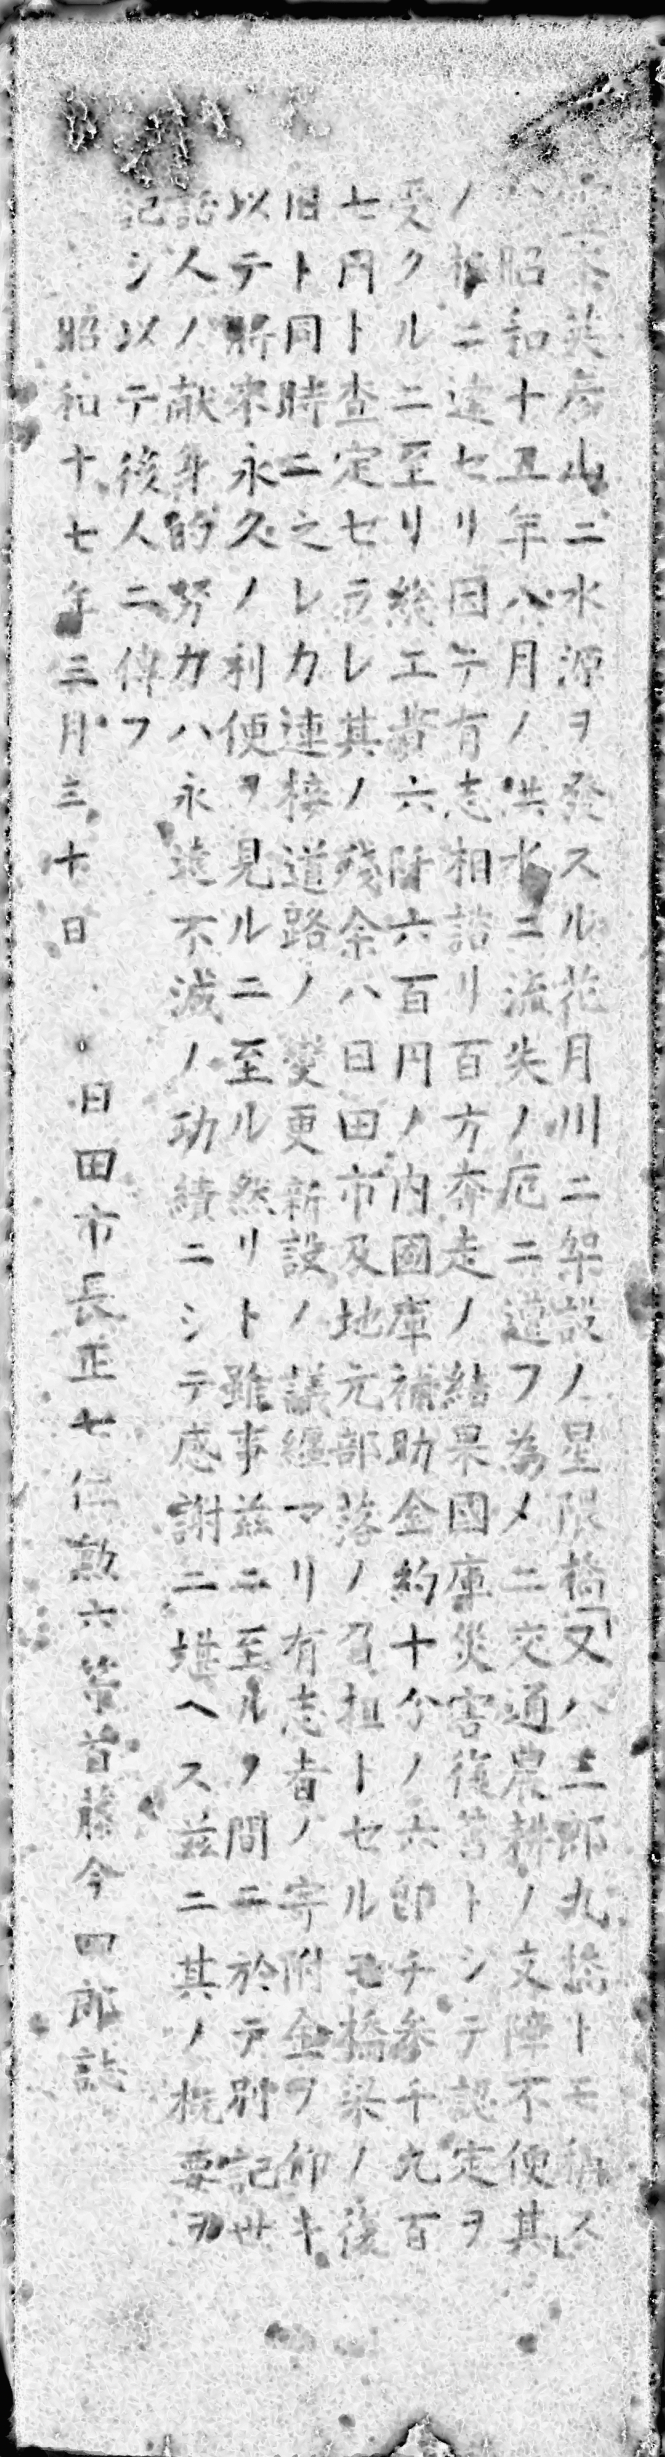 霊峯英彦山ニ水源ヲ發スル花月川ニ架設ノ星隈橋「又ハ三郎丸橋トモ稱ス」
ハ昭和十五年八月ノ洪水ニ流失ノ厄ニ遭フ為メニ交通農耕ノ支障不便其
ノ極ニ達セリ因テ有志相諮リ百方奔走ノ結果國庫災害復舊トシテ認定ヲ
受クルニ至リ総工費六阡六百円ノ内國庫補助金約十分ノ六即チ参千九百
七円ト査定セラレ其ノ残余ハ日田市及地元部落ノ負担トセルモ橋梁ノ復
旧ト同時ニ之レカ連接道路ノ變更新設ノ議纒マリ有志者ノ寄附金ヲ仰キ
以テ將来永久ノ利便ヲ見ルニ至ル然リト雖事茲ニ至ルノ間ニ於テ別記世
話人ノ献身的努力ハ永遠不滅ノ功績ニシテ感謝ニ堪ヘス茲ニ其ノ概要ヲ
記シ以テ後人ニ傳フ
昭和十七年三月三十日 日田市長正七位勲六等首藤今四郎誌